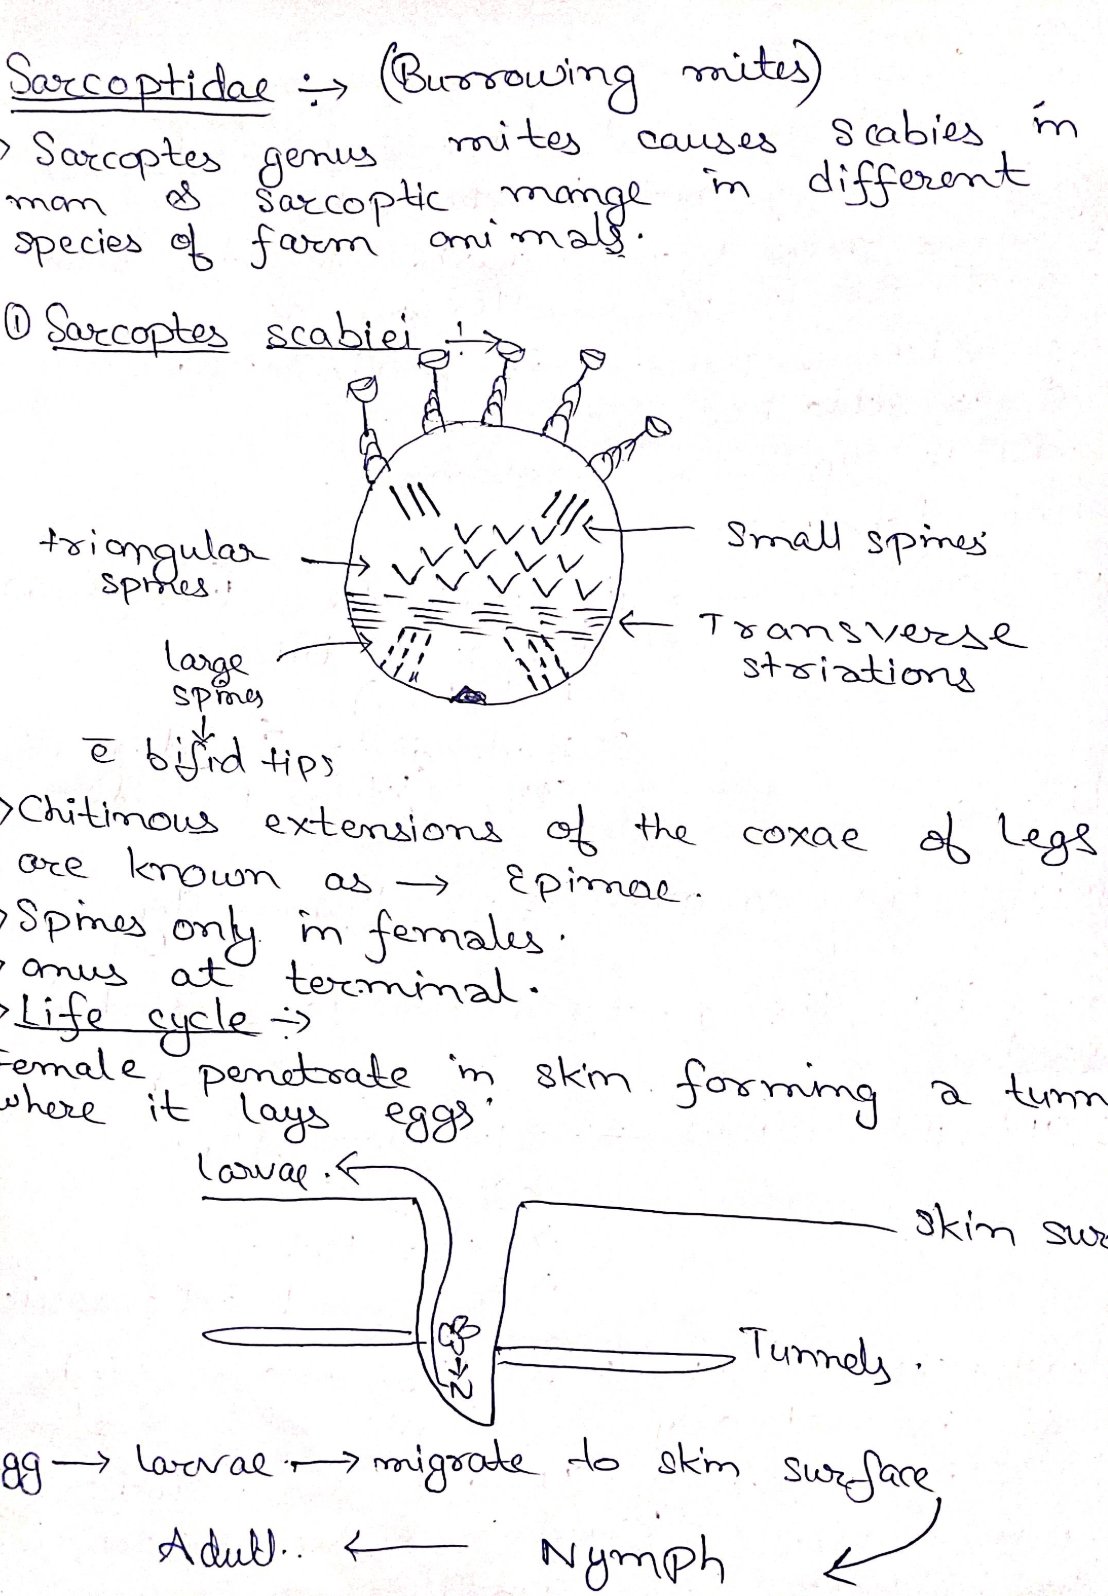 Sarcoptidae ÷→ (Burrowing mites)
> Sarcoptes genus mites causes scabies in
man & sarcoptic mange in different
species of farm animals.
① Sarcoptes scabiei ÷→
triangular
spines
Small spines
Transverse
striations
large
spines
↓
c̄ bifid tips
> Chitinous extensions of the coxae of legs
are known as → Epimae.
> Spines only in females.
> anus at terminal.
> Life cycle ÷→
Female penetrate in skin forming a tunn
where it lays eggs.
larvae ←
skin sur
Tunnels.
↓
N
gg → larvae → migrate to skin surface
Adult ← Nymph